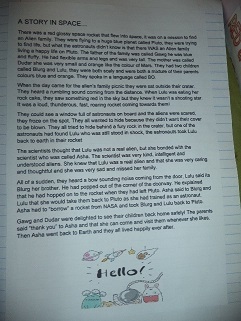 A STORY IN SPACE...
There was a red glossy space rocket that flew into space, it was on a mission to find
an Alien family. They were flying to a huge blue planet called Pluto, they were trying
to find life, but what the astronauts didn't know is that there WAS an Alien family
living a happy life on Pluto. The father of the family was called Gawg he was blue
and fluffy. He had flexible arms and legs and was very tall. The mother was called
Dudar she was very small and orange like the colour of Mars. They had two children
called Blurg and Lulu; they were both scaly and were both a mixture of their parents
colours blue and orange. They spoke in a language called BO.
When the day came for the alien's family picnic they were sat outside their crater.
They heard a rumbling sound coming from the distance. When Lulu was eating her
rock cake, they saw something red in the sky but they knew it wasn't a shooting star.
It was a loud, thunderous, fast, roaring rocket coming towards them!
They could see a window full of astronauts on board and the aliens were scared,
they froze on the spot. They all wanted to hide because they didn't want their cover
to be blown. They all tried to hide behind a fury rock in the crater, but one of the
astronauts had found Lulu who was still stood in shock, the astronauts took Lulu
back to earth in their rocket
The scientists thought that Lulu was not a real alien, but she bonded with the
scientist who was called Asha. The scientist was very kind, intelligent and
understood aliens. She knew that Lulu was a real alien and that she was very caring
and thoughtful and she was very sad and missed her family.
All of a sudden, they heard a bow sounding noise coming from the door. Lulu said its
Blurg her brother. He had popped out of the corner of the doorway. He explained
that he had hopped on to the rocket when they had left Pluto. Asha said to Blurg and
Lulu that she would take them back to Pluto as she had trained as an astronaut.
Asha had to "borrow" a rocket from NASA and took Blurg and Lulu back to Pluto
Gawg and Dudar were delighted to see their children back home safely! The parents
said "thank you" to Asha and that she can come and visit them whenever she likes.
Then Asha went back to Earth and they all lived happily ever after.
Hello!